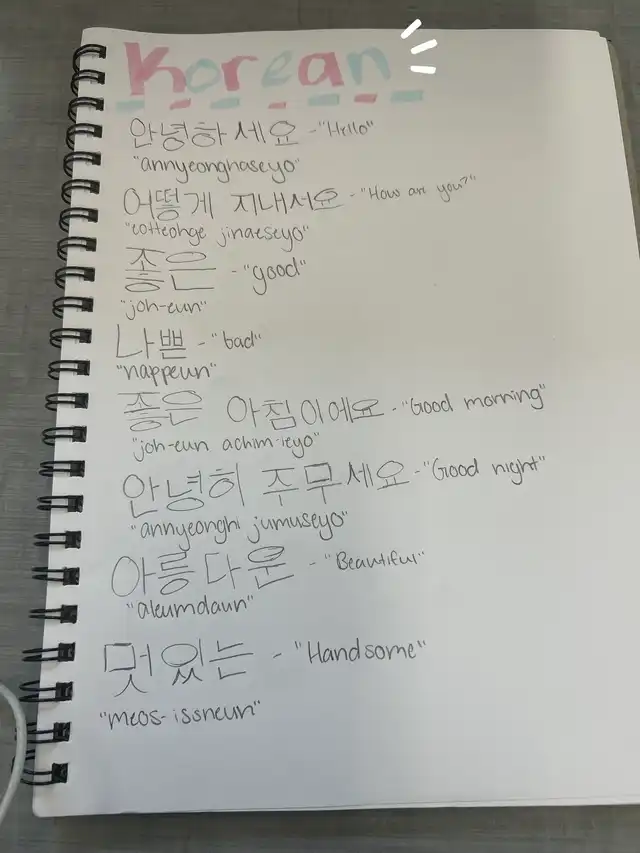 Korean
안녕하세요 - "Hello"
"annyeonghaseyo"
어떻게 지내서요 - "How are you?"
"eotteohge jinaeseyo"
좋은 - "good"
"joh-eun"
나쁜 - "bad"
"nappeun"
좋은 아침이에요 - "Good morning"
"joh-eun achim-ieyo"
안녕히 주무세요 - "Good night"
"annyeonghi jumuseyo"
아릉다운 - "Beautiful"
"aleumdaun"
멋있는 - "Handsome"
"meos-issneun"